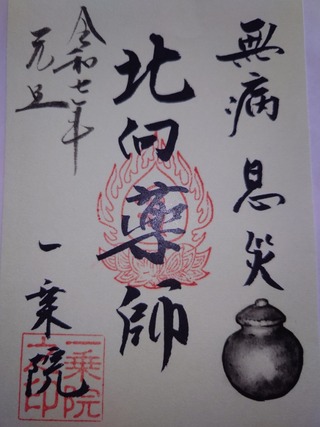 無病息災
北向薬師
令和七年
元旦
一乗院
一乗院